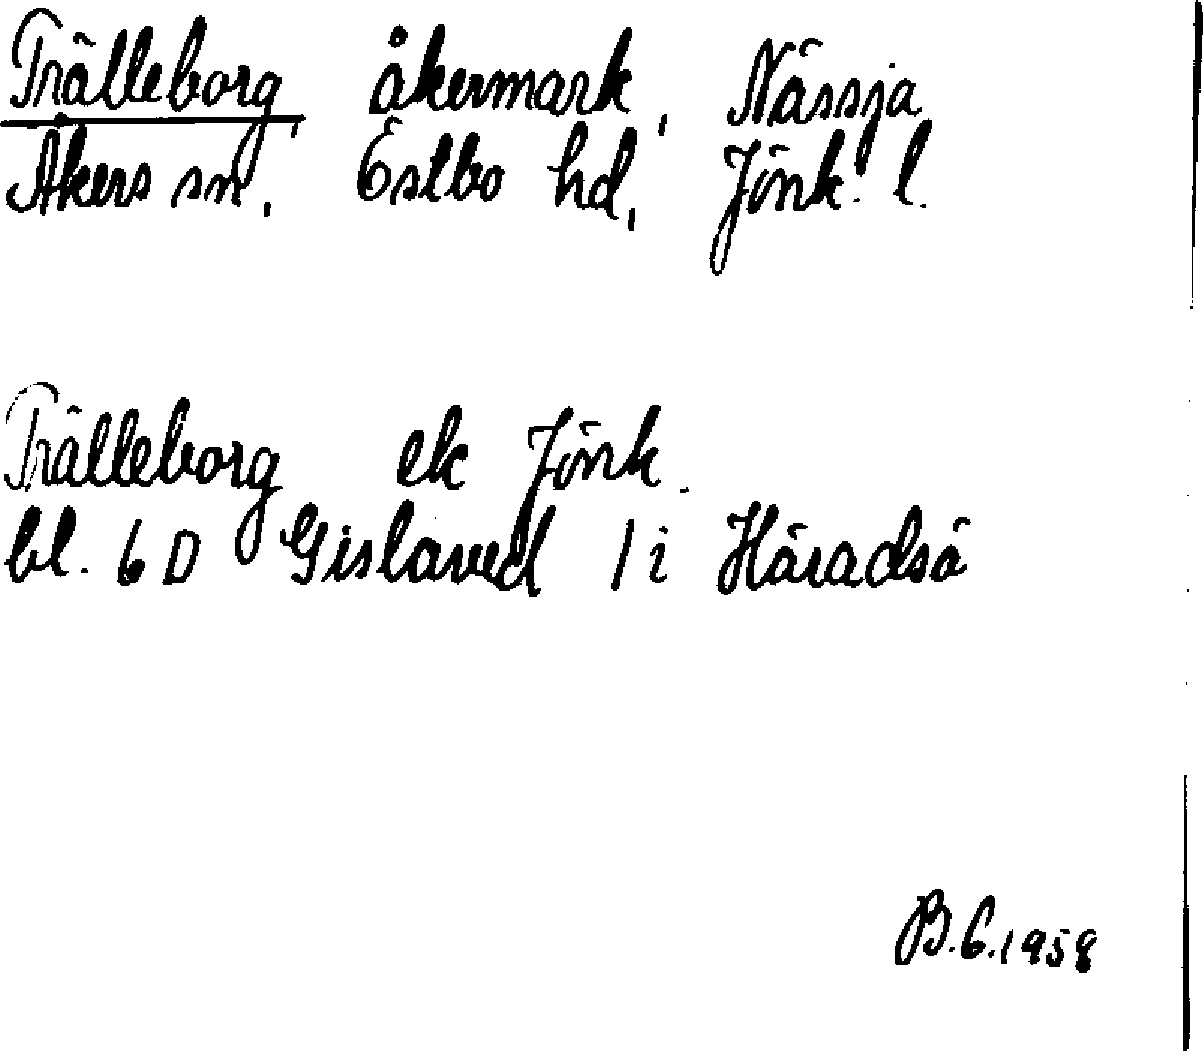 Trälleborg, åkermark, Nässja
Åkers sn, Östbo hd, Jönk. l.
Trälleborg ek Jönk.
bl. 6 D Gislaved 1 i Häradsö
B.G.1958